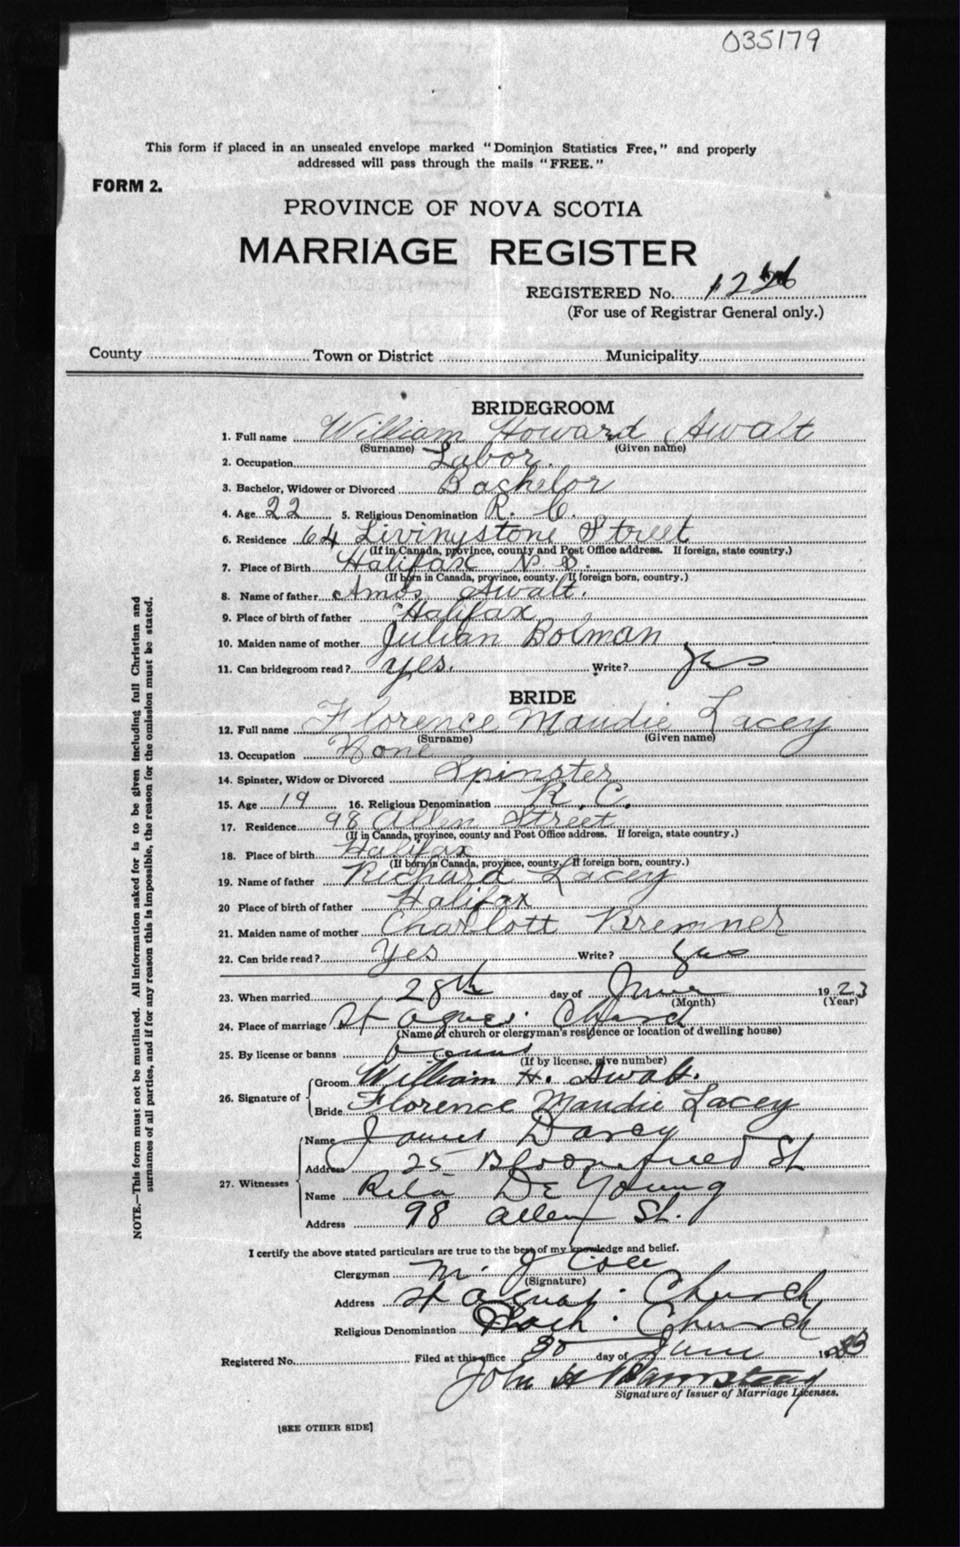 035179
This form if placed in an unsealed envelope marked "Dominion Statistics Free," and properly
addressed will pass through the mails "FREE."
FORM 2.
PROVINCE OF NOVA SCOTIA
MARRIAGE REGISTER
REGISTERED No. 1226
(For use of Registrar General only.)
County Town or District Municipality
BRIDEGROOM
1. Full name William Howard Awalt
(Surname) (Given name)
2. Occupation Labor.
3. Bachelor, Widower or Divorced Bachelor
4. Age 22 5. Religious Denomination R. C.
6. Residence 64 Livinystone Street
(If in Canada, province, county and Post Office address. If foreign, state country.)
7. Place of Birth Halifax N. S.
(If born in Canada, province, county. If foreign born, country.)
8. Name of father Amos Awalt.
9. Place of birth of father Halifax
10. Maiden name of mother Julian Bolman
11. Can bridegroom read? yes. Write? yes
BRIDE
12. Full name Florence Maudie Lacey
(Surname) (Given name)
13. Occupation None
14. Spinster, Widow or Divorced Spinster
15. Age 19 16. Religious Denomination R. C.
17. Residence 98 Allen Street
(If in Canada, province, county and Post Office address. If foreign, state country.)
18. Place of birth Halifax
(If born in Canada, province, county. If foreign born, country.)
19. Name of father Richard Lacey
20 Place of birth of father Halifax
21. Maiden name of mother Charlott Kremner
22. Can bride read? Yes Write? yes
23. When married 28th day of June 1923
(Month) (Year)
24. Place of marriage St Agnes. Church
(Name of church or clergyman's residence or location of dwelling house)
25. By license or banns banns
(If by license, give number)
26. Signature of Groom William H. Awalt.
Bride Florence Maudie Lacey
27. Witnesses Name James Darcy
Address 25 Bloomfield St
Name Rita DeYoung
Address 98 Allen St.
I certify the above stated particulars are true to the best of my knowledge and belief.
Clergyman M. J Cole
(Signature)
Address St Agnes. Church
Religious Denomination Cath. Church
Registered No. Filed at this office 30 day of June 1923
John H
Signature of Issuer of Marriage Licenses.
[SEE OTHER SIDE]
NOTE.—This form must not be mutilated. All information asked for is to be given including full Christian and
surnames of all parties, and if for any reason this is impossible, the reason for the omission must be stated.